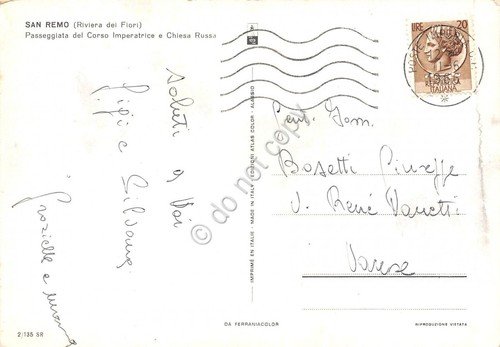 SAN REMO (Riviera dei Fiori)
Passeggiata del Corso Imperatrice e Chiesa Russa
LIRE 20
ITALIANA
saluti a Voi
Gigi e Silvana
Graziella e
Gen. Gom.
Bosetti Giuseppe
V. René Vanetti
Varese
IMPRIMÉ EN ITALIE - MADE IN ITALY - EDIZIONI ATLAS COLOR - ALASSIO
DA FERRANIACOLOR
RIPRODUZIONE VIETATA
2/135 SR
do not copy